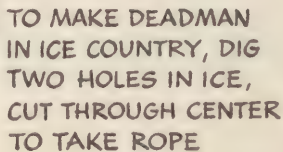 TO MAKE DEADMAN
IN ICE COUNTRY, DIG
TWO HOLES IN ICE,
CUT THROUGH CENTER
TO TAKE ROPE